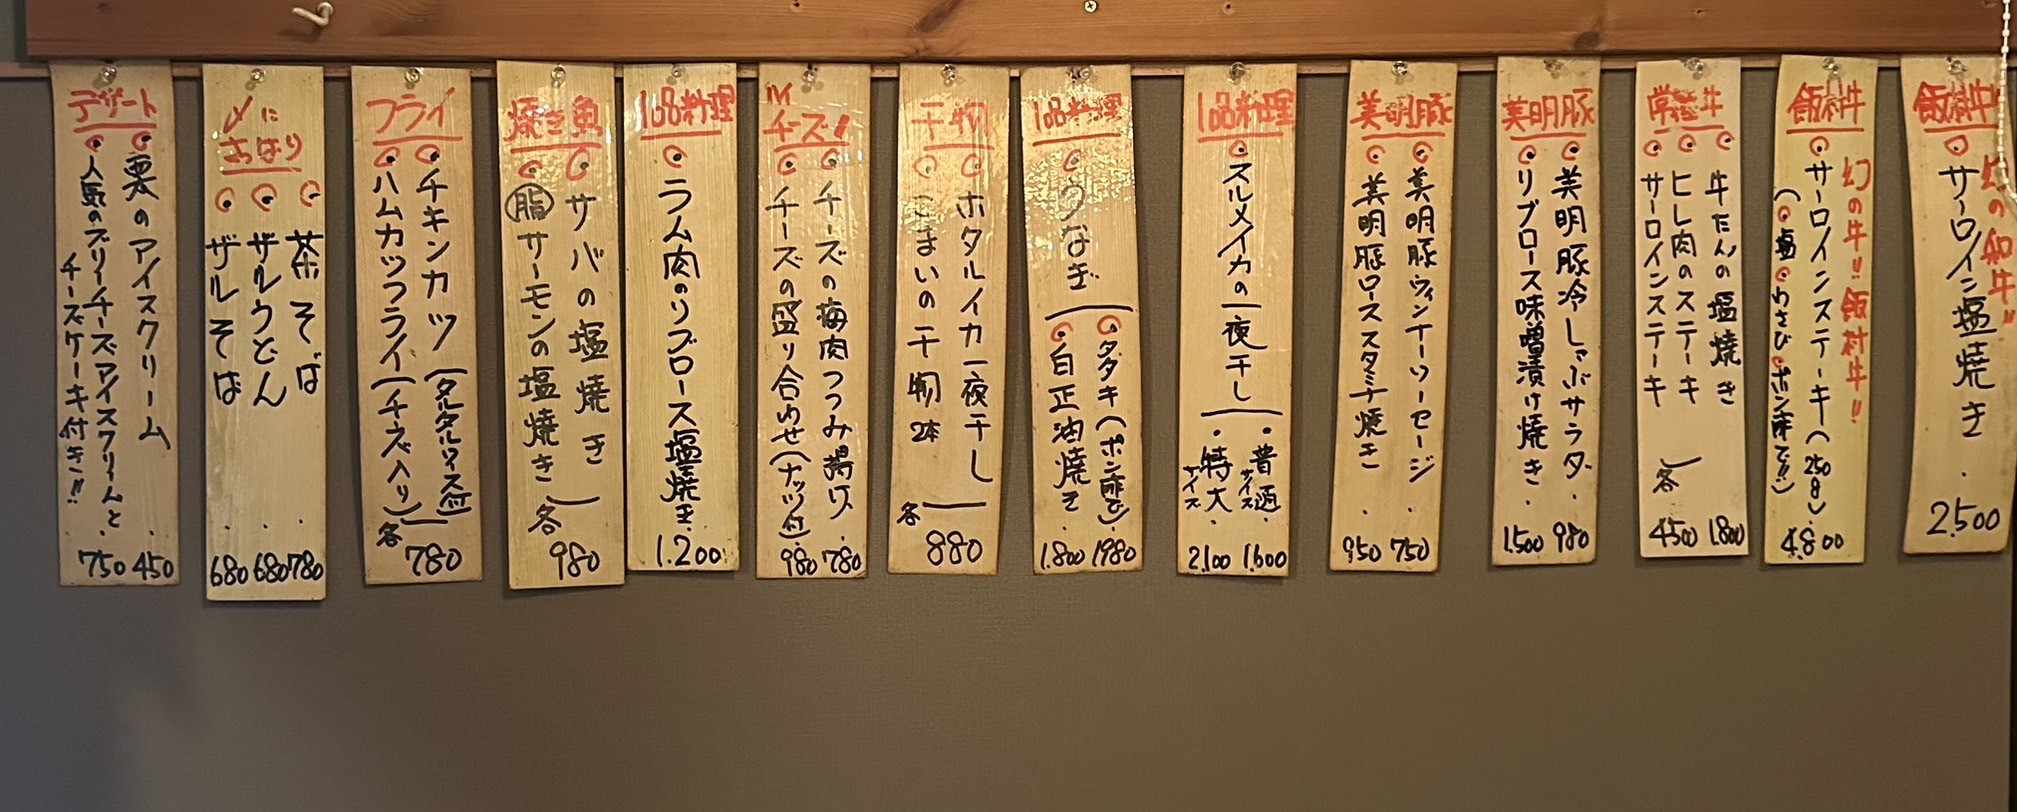 飯村牛
幻の和牛!!
サーロイン塩焼き・2.500
飯村牛
幻の牛!!飯村牛!!
サーロインステーキ(250g)・4.800
(塩 わさび ポン酢で!!)
常陸牛
牛たんの塩焼き 1.800
ヒレ肉のステーキ
サーロインステーキ
各 4500
美明豚
美明豚冷しゃぶサラダ・980
リブロース味噌漬け焼き・1.500
美明豚
美明豚ウィンナーソーセージ・750
美明豚ローススタミナ焼き・950
1品料理
スルメイカの一夜干し
・普通サイズ・1.600
・特大サイズ・2.100
1品料理
うなぎ
タタキ(ポン酢で)・1980
白正油焼き・1.800
干物
ホタルイカ一夜干し
こまいの干物2本
各 880
チーズ!
チーズの梅肉つつみ揚げ・780
チーズの盛り合わせ(ナッツ付)・980
1品料理
ラム肉のリブロース塩焼き・1.200
焼き魚
サバの塩焼き
脂サーモンの塩焼き
各 980
フライ
チキンカツ(タルタルソース付)
ハムカツフライ(チーズ入り)
各 780
〆に
さっぱり
茶そば・780
ザルうどん・680
ザルそば・680
デザート
栗のアイスクリーム・450
人気のスリーチーズアイスクリームと
チーズケーキ付き!!750